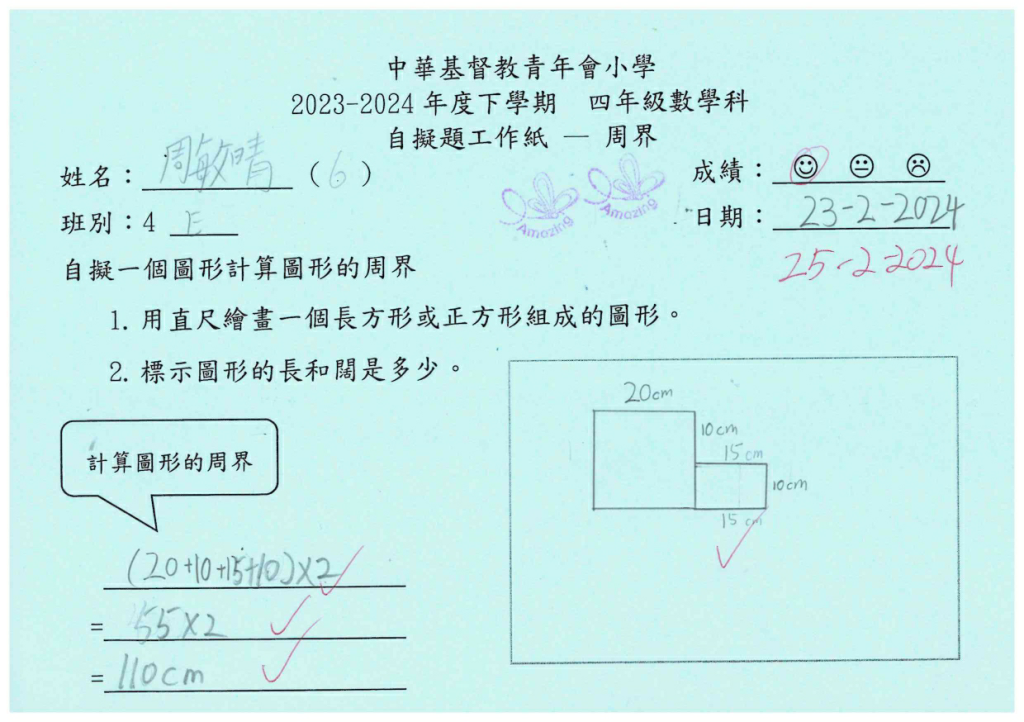 中華基督教青年會小學
2023-2024 年度下學期 四年級數學科
自擬題工作紙 — 周界
姓名：周敏晴（6） 成績：☺ 😐 ☹
班別：4 E 日期：23-2-2024
25-2-2024
Amazing Amazing
自擬一個圖形計算圖形的周界
1. 用直尺繪畫一個長方形或正方形組成的圖形。
2. 標示圖形的長和闊是多少。
20cm
10cm
15cm
10cm
15cm
計算圖形的周界
(20+10+15+10)×2
= 55×2
= 110cm